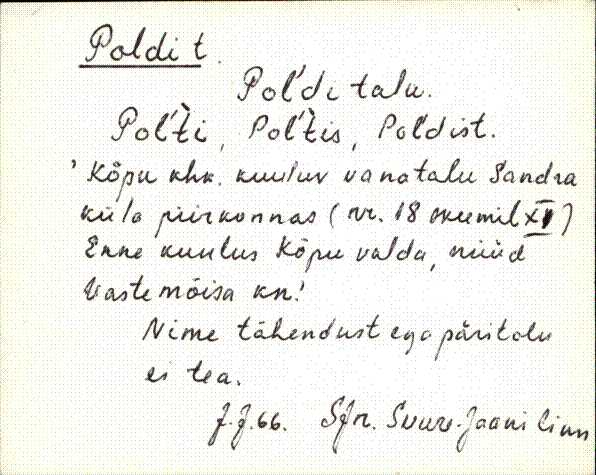 Poldi t.
Pol'di talu.
Pol't̀i, Pol't̀is, Poldist.
' Kõpu khk. kuuluv vanatalu Sandra
küla piirkonnas (nr. 18 skeemil XV)
Enne kuulus Kõpu valda, nüüd
Vastemõisa kn.'
Nime tähendust ega päritolu
ei tea.
J.J.66. SJn. Suure-Jaani linn